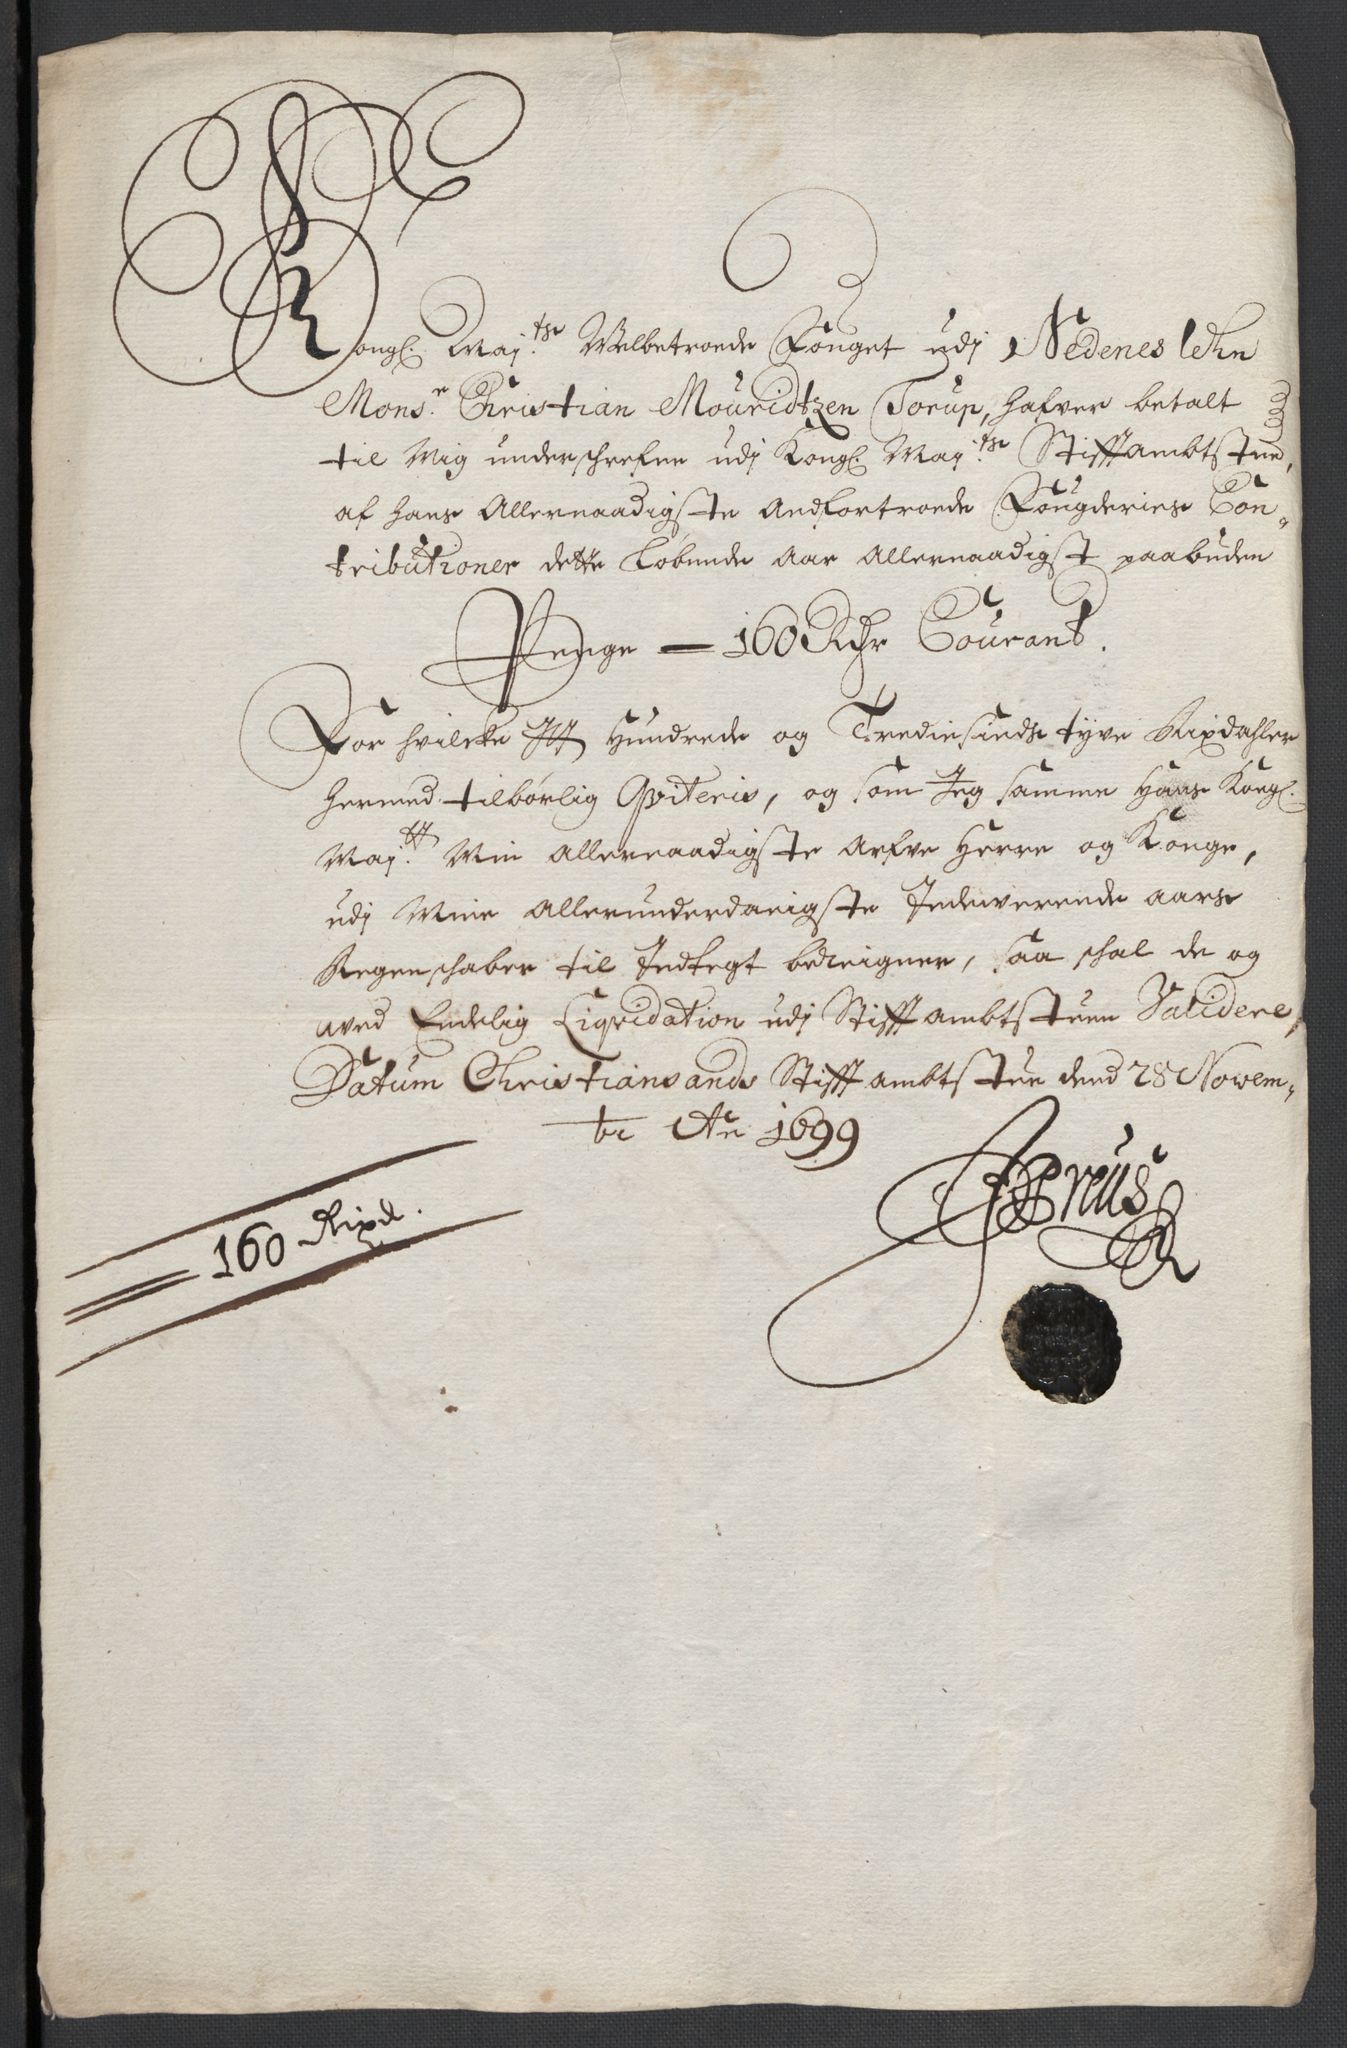 Kongl. Maj.tts Velbetroede Fouget udj Nedenes lehn
Mons.r Christian Mouridtzen Torup, hafver betalt
til Mig underschrefne udj Kongl. Maj.tts Stifftambtstue,
af hans Allernaadigste Andfortroede Fougderies Con-
tributioner dette Løbende Aar Allernaadigst paabuden
Penge — 160 Rdr Courant.
For hvilcke Itt Hundrede og Trediesinds tyve Rixdahler
hermed tilbørlig Qviteris, og som Jeg samme Hans Kongl.
Maj.tt Min Allernaadigste Arfve Herre og Konge,
udj Mine Allerunderdanigste Indeværende aars
Regenschaber til Indtegt beregner, saa schal de og
ved Endelig Liqvidation udj Stifftambtstuen Validere,
Datum Christiansands Stifftambtstue dend 28 Novem-
br Ao 1699
160 Rixd.